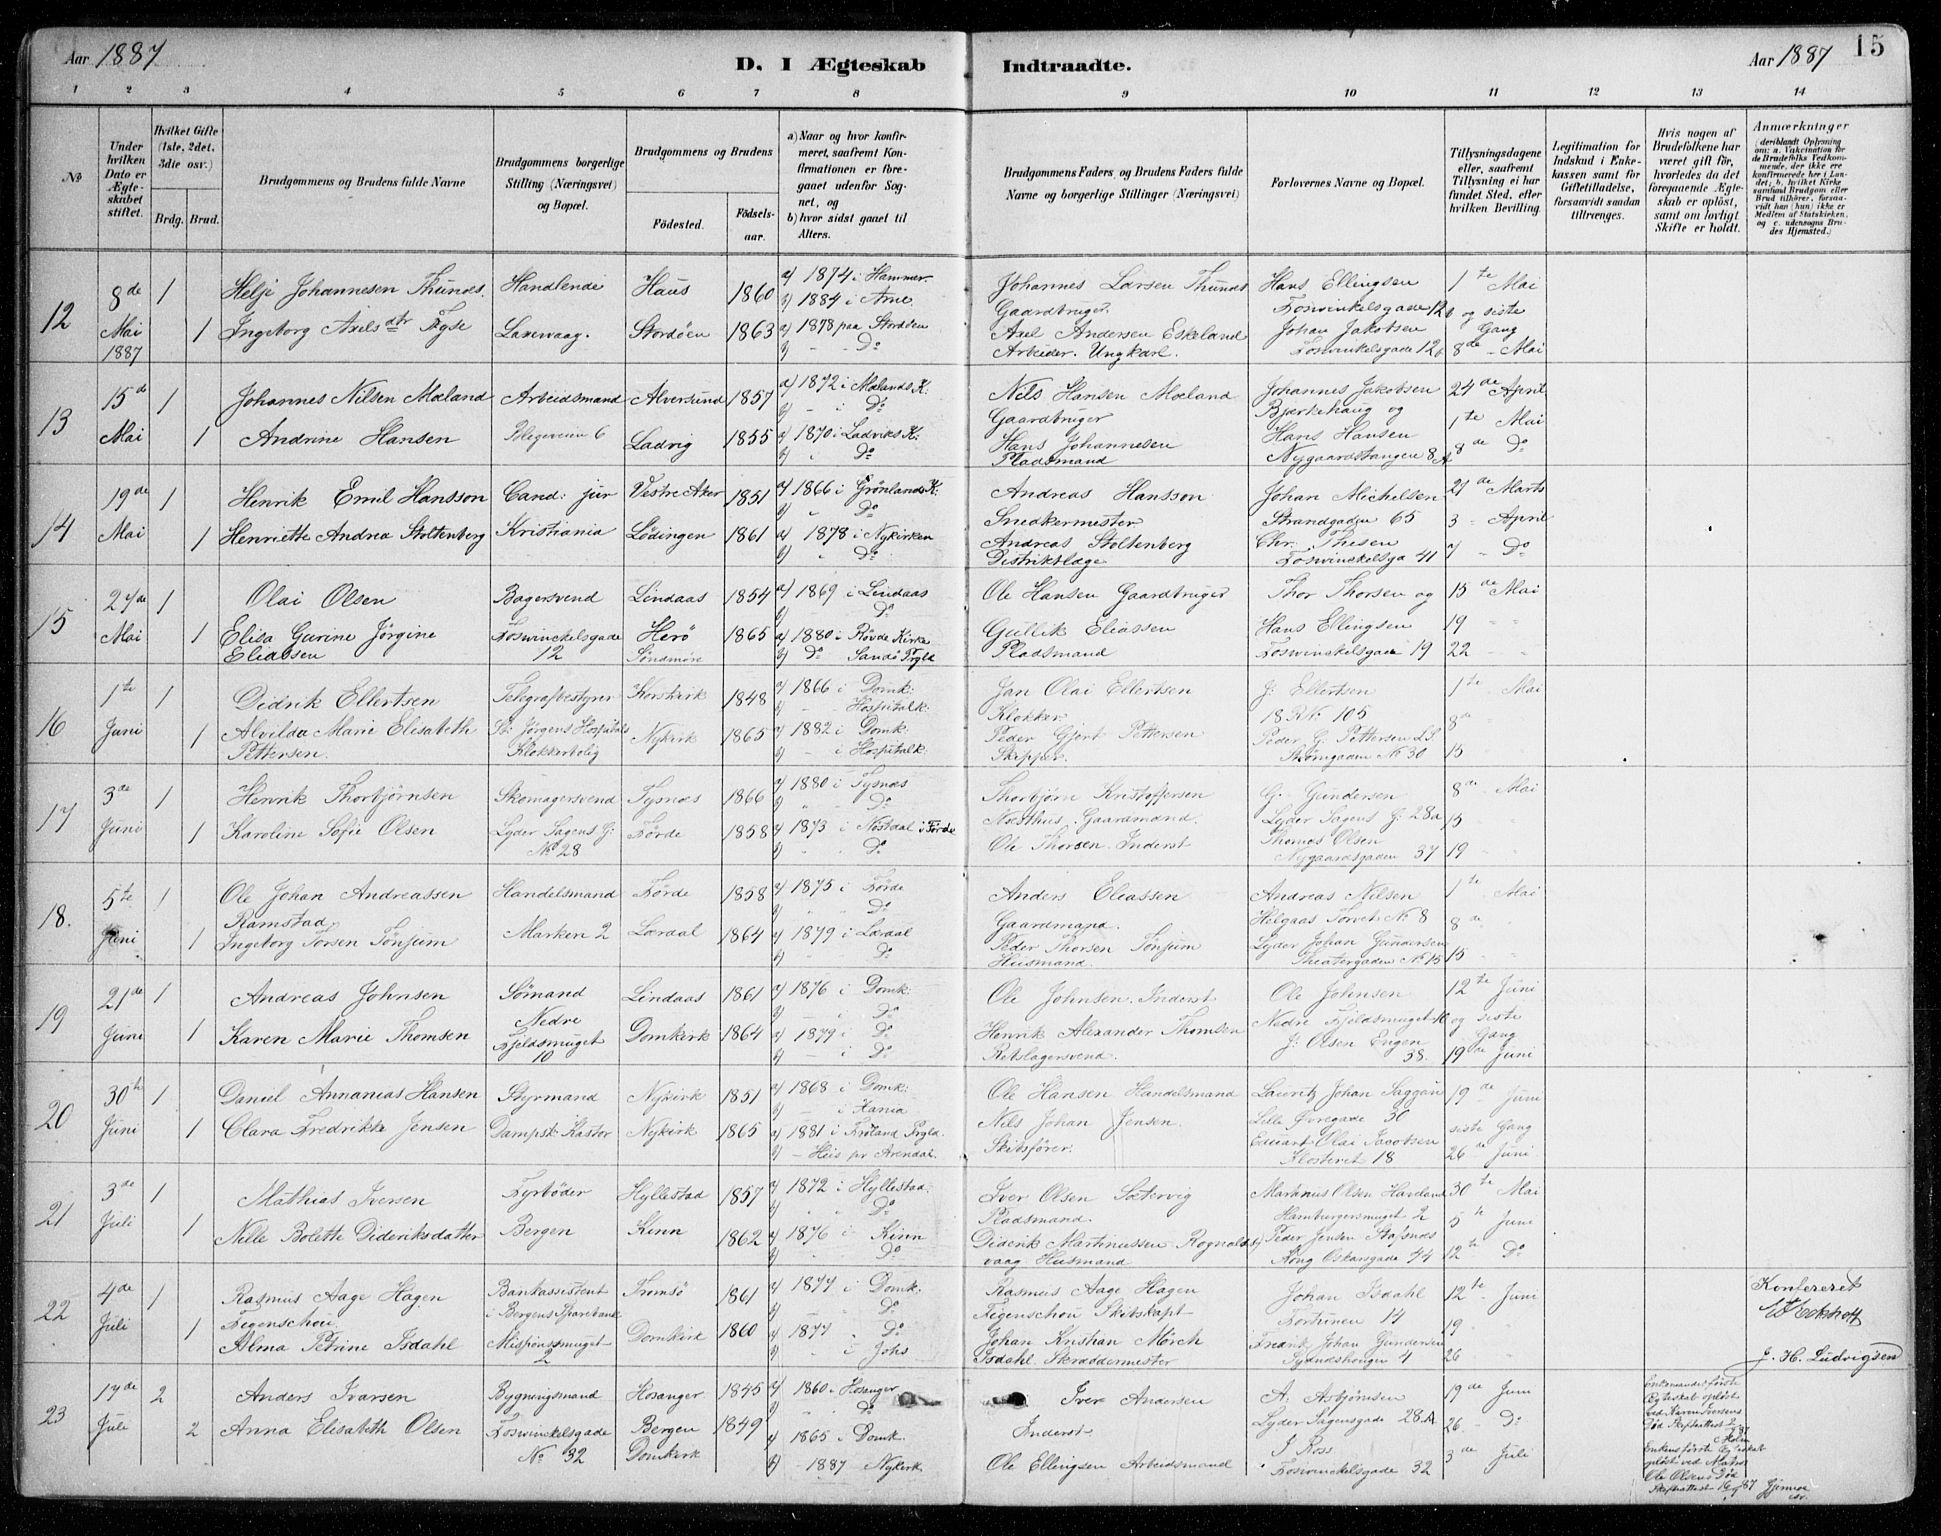 Aar 1887
D. I Ægteskab Indtraadte.
Aar 1887 15
1 2 3 4 5 6 7 8 9 10 11 12 13 14
No
Under hvilken Dato er Ægteskabet stiftet.
Hvilket Gifte (1ste, 2det, 3die osv.)
Brdg. Brud.
Brudgommens og Brudens fulde Navne
Brudgommens borgerlige Stilling (Næringsvei) og Bopæl.
Brudgommens og Brudens
Födested.
Födselsaar.
a) Naar og hvor konfirmeret, saafremt Konfirmationen er foregaaet udenfor Sognet, og
b) hvor sidst gaaet til Alters.
Brudgommens Faders, og Brudens Faders fulde Navne og borgerlige Stillinger (Næringsvei)
Forlovernes Navne og Bopæl.
Tillysningsdagene eller, saafremt Tillysning ei har fundet Sted, efter hvilken Bevilling.
Legitimation for Indskud i Enkekassen samt for Giftetilladelse, forsaavidt saadan tiltrænges.
Hvis nogen af Brudefolkene har været gift før, hvorledes da det foregaaende Ægteskab er oplöst, samt om lovligt Skifte er holdt.
Anmærkninger (deriblandt Oplysning om: a. Vakcination for de Brudefolks Vedkommende, der ikke ere konfirmerede her i Landet; b. hvilket Kirkesamfund Brudgom eller Brud tilhörer, forsaavidt han (hun) ikke er Medlem af Statskirken, og c. udensogns Brudes Hjemsted.)
12 8de Mai 1887 1 1
Helje Johannesen Thunes. Handlende Haus 1860 a) 1874 i Hammer. b) 1884 i Arne.
Ingeborg Axelsdtr Fyse Laxevaag. Stordöen 1863 a) 1878 paa Stordöen b) - - Do
Johannes Larsen Thunes Gaardbruger.
Axel Andersen Eskeland Arbeider. Ungkarl.
Hans Ellingsen Foswinkelsgade 12b
Johan Jakobsen Foswinkelsgade 12b
1te Mai og siste Gang 8de - Mai
13 15de Mai 1 1
Johannes Nilsen Mæland Arbeidsmand Alversund 1857 a) 1872 i Mælands K: b) - i Do
Andrine Hansen 6 Ladvig 1855 a) 1870 i Ladviks K: b) Do
Nils Hansen Mæland Gaardbruger
Hans Johannesen Pladsmand
Johannes Jakobsen Bjerkehaug og
Hans Hansen Nygaardstangen 8A
24de April 1te Mai 8de Do
14 19de Mai 1 1
Henrik Emil Hansson Cand: jur Vestre Aker 1851 a) 1866 i Grönlands K: b) " Do
Henriette Andrea Stoltenberg Kristiania Lödingen 1861 a) 1878 i Nykirken b) Do
Andreas Hansson Snedkermester
Andreas Stoltenberg Distriktslæge
Johan Michelsen Strandgaden 65
Chr: Thesen Foswinckelsga 41
27de Marts 3 - April 7 " Do
15 27de Mai 1 1
Olai Olsen Bagersvend Lindaas 1854 a) 1869 i Lindaas b) Do
Elisa Gurine Jörgine Eliassen Foswinckelsgade 12 Herö Söndmöre 1865 a) 1880 i Rövde Kirke b) Do Sandö Prgld
Ole Hansen Gaardbruger
Gullik Eliassen Pladsmand
Thor Thorsen og
Hans Ellingsen Foswinkelsgade 19
15de Mai 19 " " 22 - -
16 1te Juni 1 1
Didrik Ellertsen Telegrafbestyrer Korskirk 1848 a) 1866 i Domk: b) - - Hospitalk:
Alvilda Marie Elisabeth Pettersen. St: Jørgens Hospitals Klokkerbolig Nykirk 1865 a) 1882 i Domk: b) - i Hospitalk:
Jan Olai Ellertsen Klokker
Peder Gjert Pettersen Skipper.
J: Ellertsen 18 R No 105
Peder G. Pettersen Strömgaden No 30
1te Mai 8de - 15 - -
17 3de Juni 1 1
Henrik Thorbjörnsen Skomagersvend Tysnæs 1866 a) 1880 i Tysnæs b) " Do
Karoline Sofie Olsen Lyder Sagens G: No 28 Förde 1858 a) 1873 i Nöstdal i Förde b) - - Do
Thorbjörn Kristoffersen Næsthus. Gaardmand.
Ole Thorsen. Inderst
G. Gundersen Lyder Sagens G: 28a
Thomas Olsen Nygaardsgaden 37
8de Mai 15 " " 19 " "
18. 5te Juni 1 1
Ole Johan Andreassen Ramstad Handelsmand Förde 1858 a) 1875 i Förde b) " " Do
Ingeborg Torsen Tönjum Marken 2 Lærdal 1864 a) 1879 i Lærdal b) - - Do
Anders Eliassen Gaardmand.
Peder Thorsen Tönjum Husmand.
Andreas Nilsen Helgaas Torvet No 8
Lyder Johan Gundersen Theatergaden No 15
1te Mai 8de - 15 - -
19 21de Juni 1 1
Andreas Johnsen Sömand Lindaas 1861 a) 1876 i Domk: b) - i Do
Karen Marie Thomsen Nedre Fjeldsmuget 10 Domkirk 1864 a) 1879 i Do b) - i Do
Ole Johnsen. Inderst
Henrik Alexander Thomsen Rebslagersvend.
Ole Johnsen Nedre Fjeldsmuget 10
J: Olsen Engen 38.
12te Juni og siste Gang 19de Juni
20 30te Juni 1 1
Daniel Annanias Hansen Styrmand Nykirk 1851 a) 1868 i Domk: b) - i Xania
Clara Fredrikke Jensen Dampsk: Kastor Nykirk 1865 a) 1881 i Fröland Prgld. b) - Huis pr Arendal.
Ole Hansen Handelsmand
Nils Johan Jensen. Skibsförer.
Lauritz Johan Saggau Lille Övregade 30
Eduart Olai Jacobsen Klosteret 18
19de Juni siste Gang 26de Juni
21 3de Juli 1 1
Mathias Iversen Fyrböder Hyllestad 1857 a) 1872 i Hyllestad. b) " " Do
Nille Bolette Dideriksdatter Bergen Kinn 1862 a) 1876 i Kinn b) " Do
Iver Olsen Sætervig Pladsmand.
Diderik Martinussen Rognalds vaag Husmand
Martinus Olsen Havland Hamburgersmuget 2
Peder Jensen Stafsnæs Kong Oskarsgade 44
30te Mai 5te Juni 12te Do
22 4de Juli 1 1
Rasmus Aage Hagen Figenschou. Bankassistent i Bergens Sparebank Tromsö 1861 a) 1877 i Domk: b) Do
Alma Petrine Isdahl Missionssmuget 2 Domkirk 1860 a) 1877 " Do b) - i Johs
Rasmus Aage Hagen Figenschou Skibskapt
Johan Kristian Mörch Isdahl. Skræddermester
Johan Isdahl Fortunen 14
Fredrik Johan Gundersen Sydnæshougen 4
12te Juni 19 26
Konfereret
J. H. Ludvigsen
23 17de Juli 2 2
Anders Ivarsen Bygningsmand Hosanger 1845 a) 1860 i Hosanger b) - Do
Anna Elisabeth Olsen Foswinckelsgade No 32 Bergen Domkirk 1849 a) 1865 i Domk. b) - 1887 Nykirk
Iver Andersen Inderst
Ole Ellingsen Arbeidsmand
A. Asbjörnsen Lyder Sagensgade 28.A
J Ross Foswinckelsgade 32
19de Juni 26 - Do 3de Juli
Enkemandens første Ægteskab opløst ved Karen Iversens Død Skifteattest
Enkens første Ægteskab opløst ved Ole Olsens Død Skifteattest 16/7 87